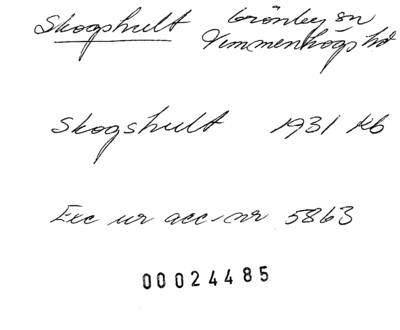 Skogshult Grönby sn
Vemmenhögs hd
Skogshult 1931 kb
Exc ur acc-nr 5863
00024485